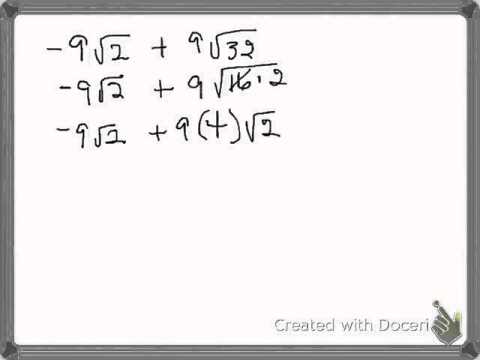 -9√2 + 9√32
-9√2 + 9√16·2
-9√2 + 9(4)√2
Created with Doceri